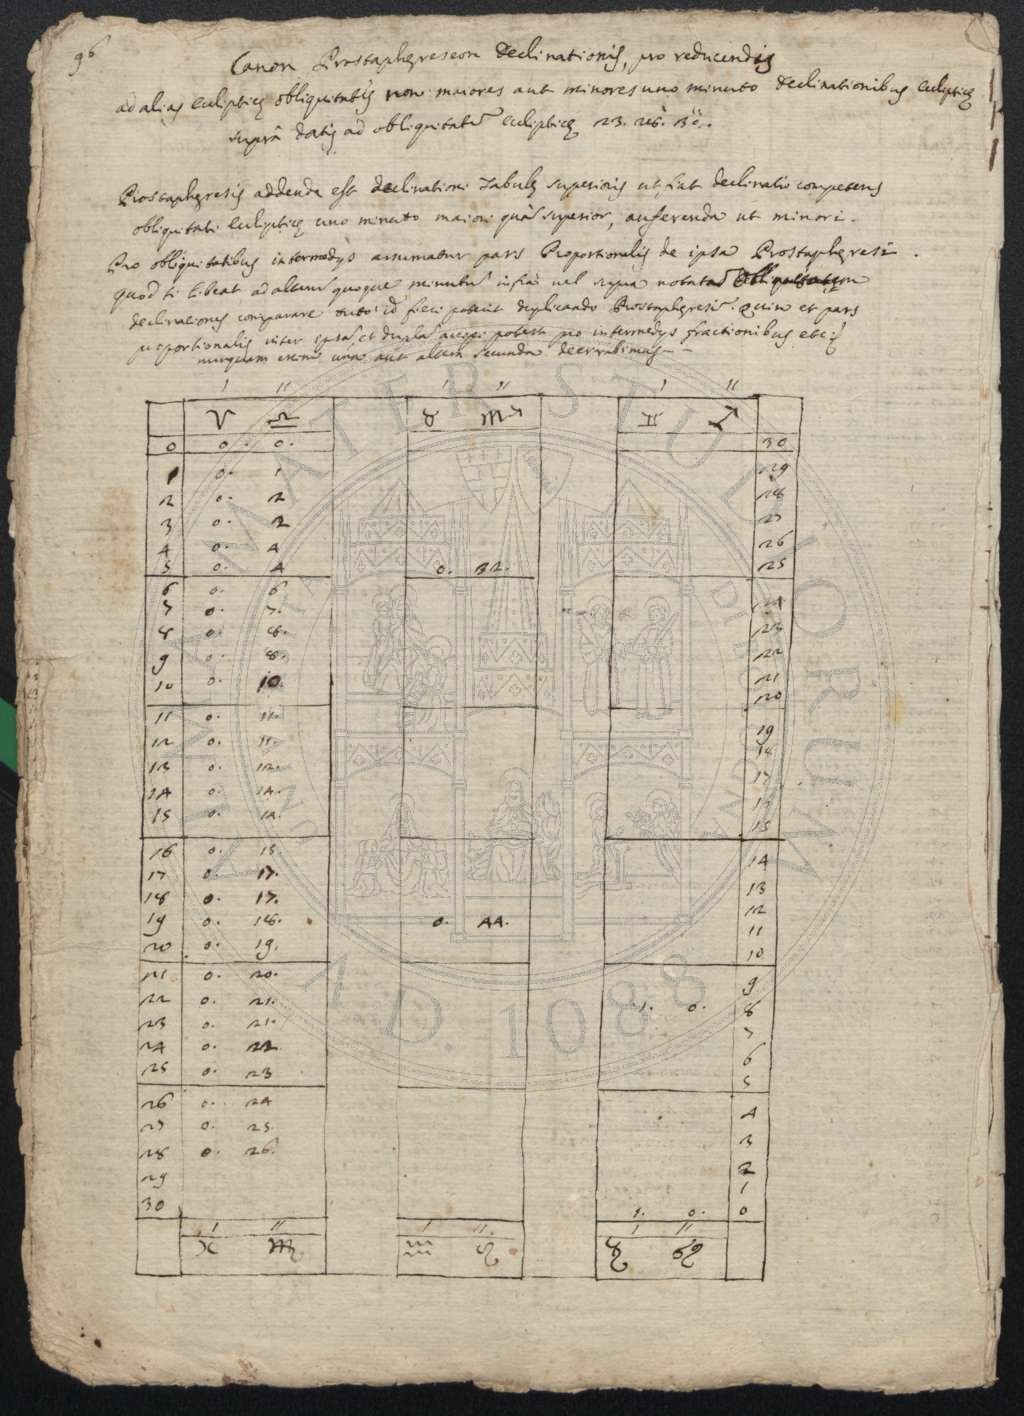 96
Canon Prostaphęreseon Declinationis, pro reducendis
ad alias Eclipticę obliquitatis non maiores aut minores uno minuto Declinationibus Eclipticę
supra datis ad obliquitatē Eclipticę 23. 28. 30.
Prostaphęresis addenda est declinationi Tabulę superioris ut fiat declinatio competens
obliquitati Eclipticę uno minuto maiori quā superior, auferenda ut minori.
Pro obliquitatibus intermedijs assumatur pars Proportionalis de ipsa Prostaphęresi
quod si libeat ad alterū quoque minutū infra vel supra
declinationes comparare tuto id fieri poterit duplicando Prostaphęresī. quin et pars
proportionalis inter ipsā et duplā accipi poterit pro intermedijs fractionibus etc
nunquam enim uno aut altero secundo aberrabimus
ı ıı ı ıı ı ıı
♈ ♎ ♉ ♏ ♊ ♐
0 0. 0. 30
1 0. 1 29
2 0. 2 28
3 0. 2 27
4 0. 4 26
5 0. 4 0. 32. 25
6 0. 6. 24
7 0. 7. 23
8 0. 8. 22
9 0. 8. 21
10 0. 10. 20
11 0. 11. 19
12 0. 11. 18
13 0. 12. 17
14 0. 14. 16
15 0. 14. 15
16 0. 15. 14
17 0. 17. 13
18 0. 17. 12
19 0. 18. 0. 44. 11
20 0. 19. 10
21 0. 20. 9
22 0. 21. 1. 0. 8
23 0. 21. 7
24 0. 22 6
25 0. 23 5
26 0. 24 4
27 0. 25. 3
28 0. 26. 2
29 1
30 1. 0. 0
ı ıı ı ıı ı ıı
♓ ♍ ♒ ♌ ♑ ♋
ALMA MATER STUDIORUM
A.D. 1088